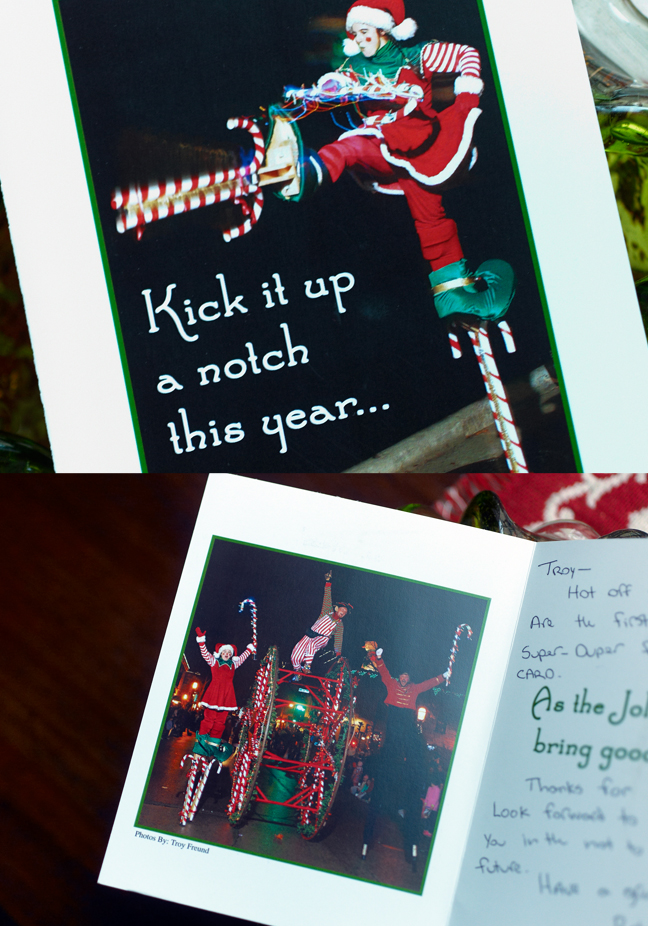 Kick it up
a notch
this year...
Photos By: Troy Freund
TROY—
Hot off
ARE the first
SUPER-DUPER
CARD.
As the
bring
Thanks for
Look forward to
You in the not to
future.
HAVE a